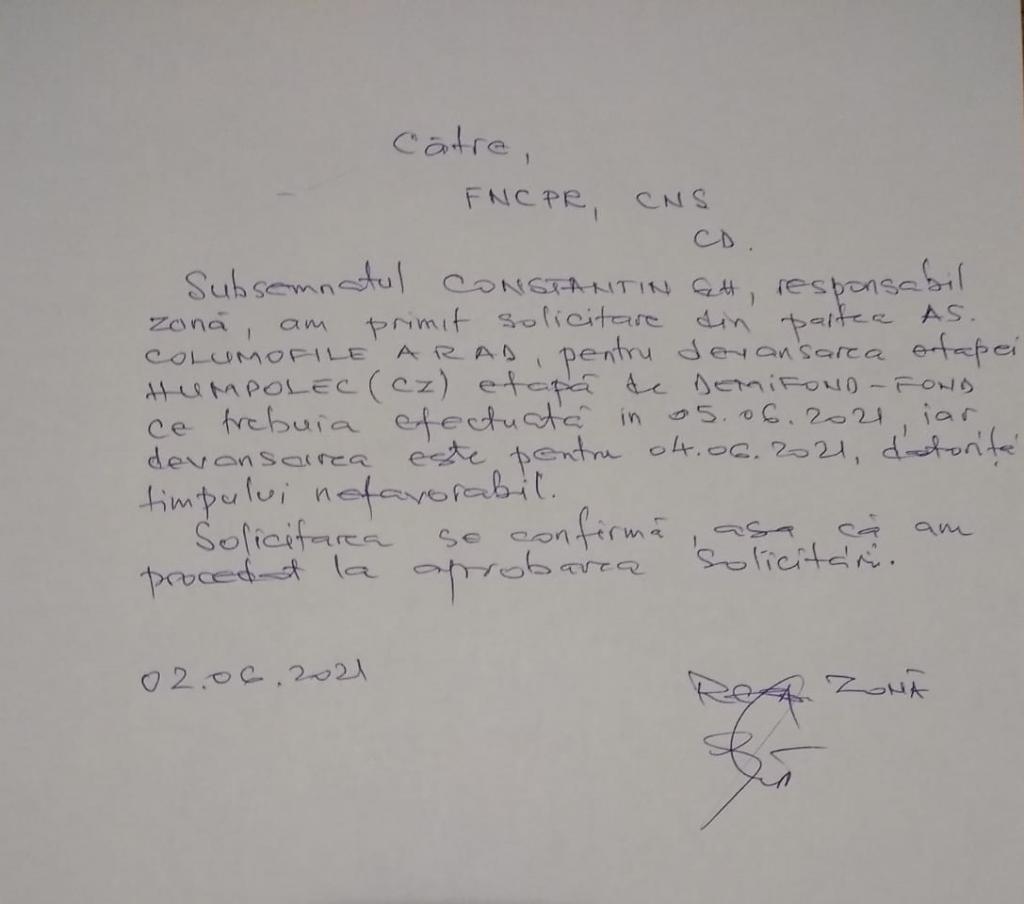 Către,
FNCPR, CNS
CD.
Subsemnatul CONSTANTIN GH, responsabil
zonă, am primit solicitare din partea AS.
COLUMOFILE ARAD, pentru devansarea etapei
HUMPOLEC (CZ) etapă de DEMIFOND-FOND
ce trebuia efectuată in 05.06.2021, iar
devansarea este pentru 04.06.2021, datorită
timpului nefavorabil.
Solicitarea se confirmă, asa că am
procedat la aprobarea solicitării.
02.06.2021
RESP. ZONĂ